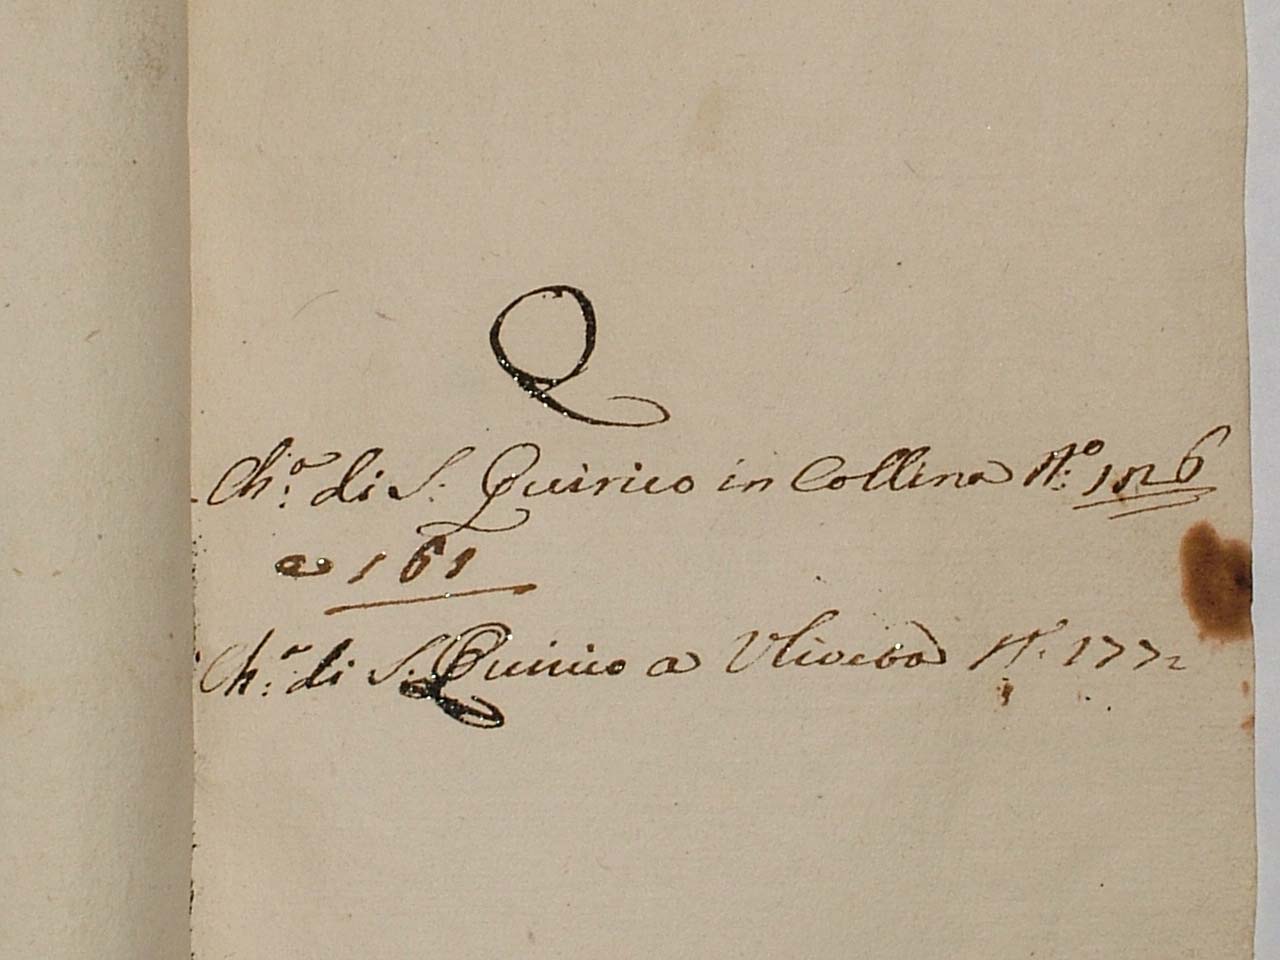 Q
Ch.ª di S. Quirico in Collina N.º 126
e 161
Ch.ª di S. Quirico a Uliveta N.